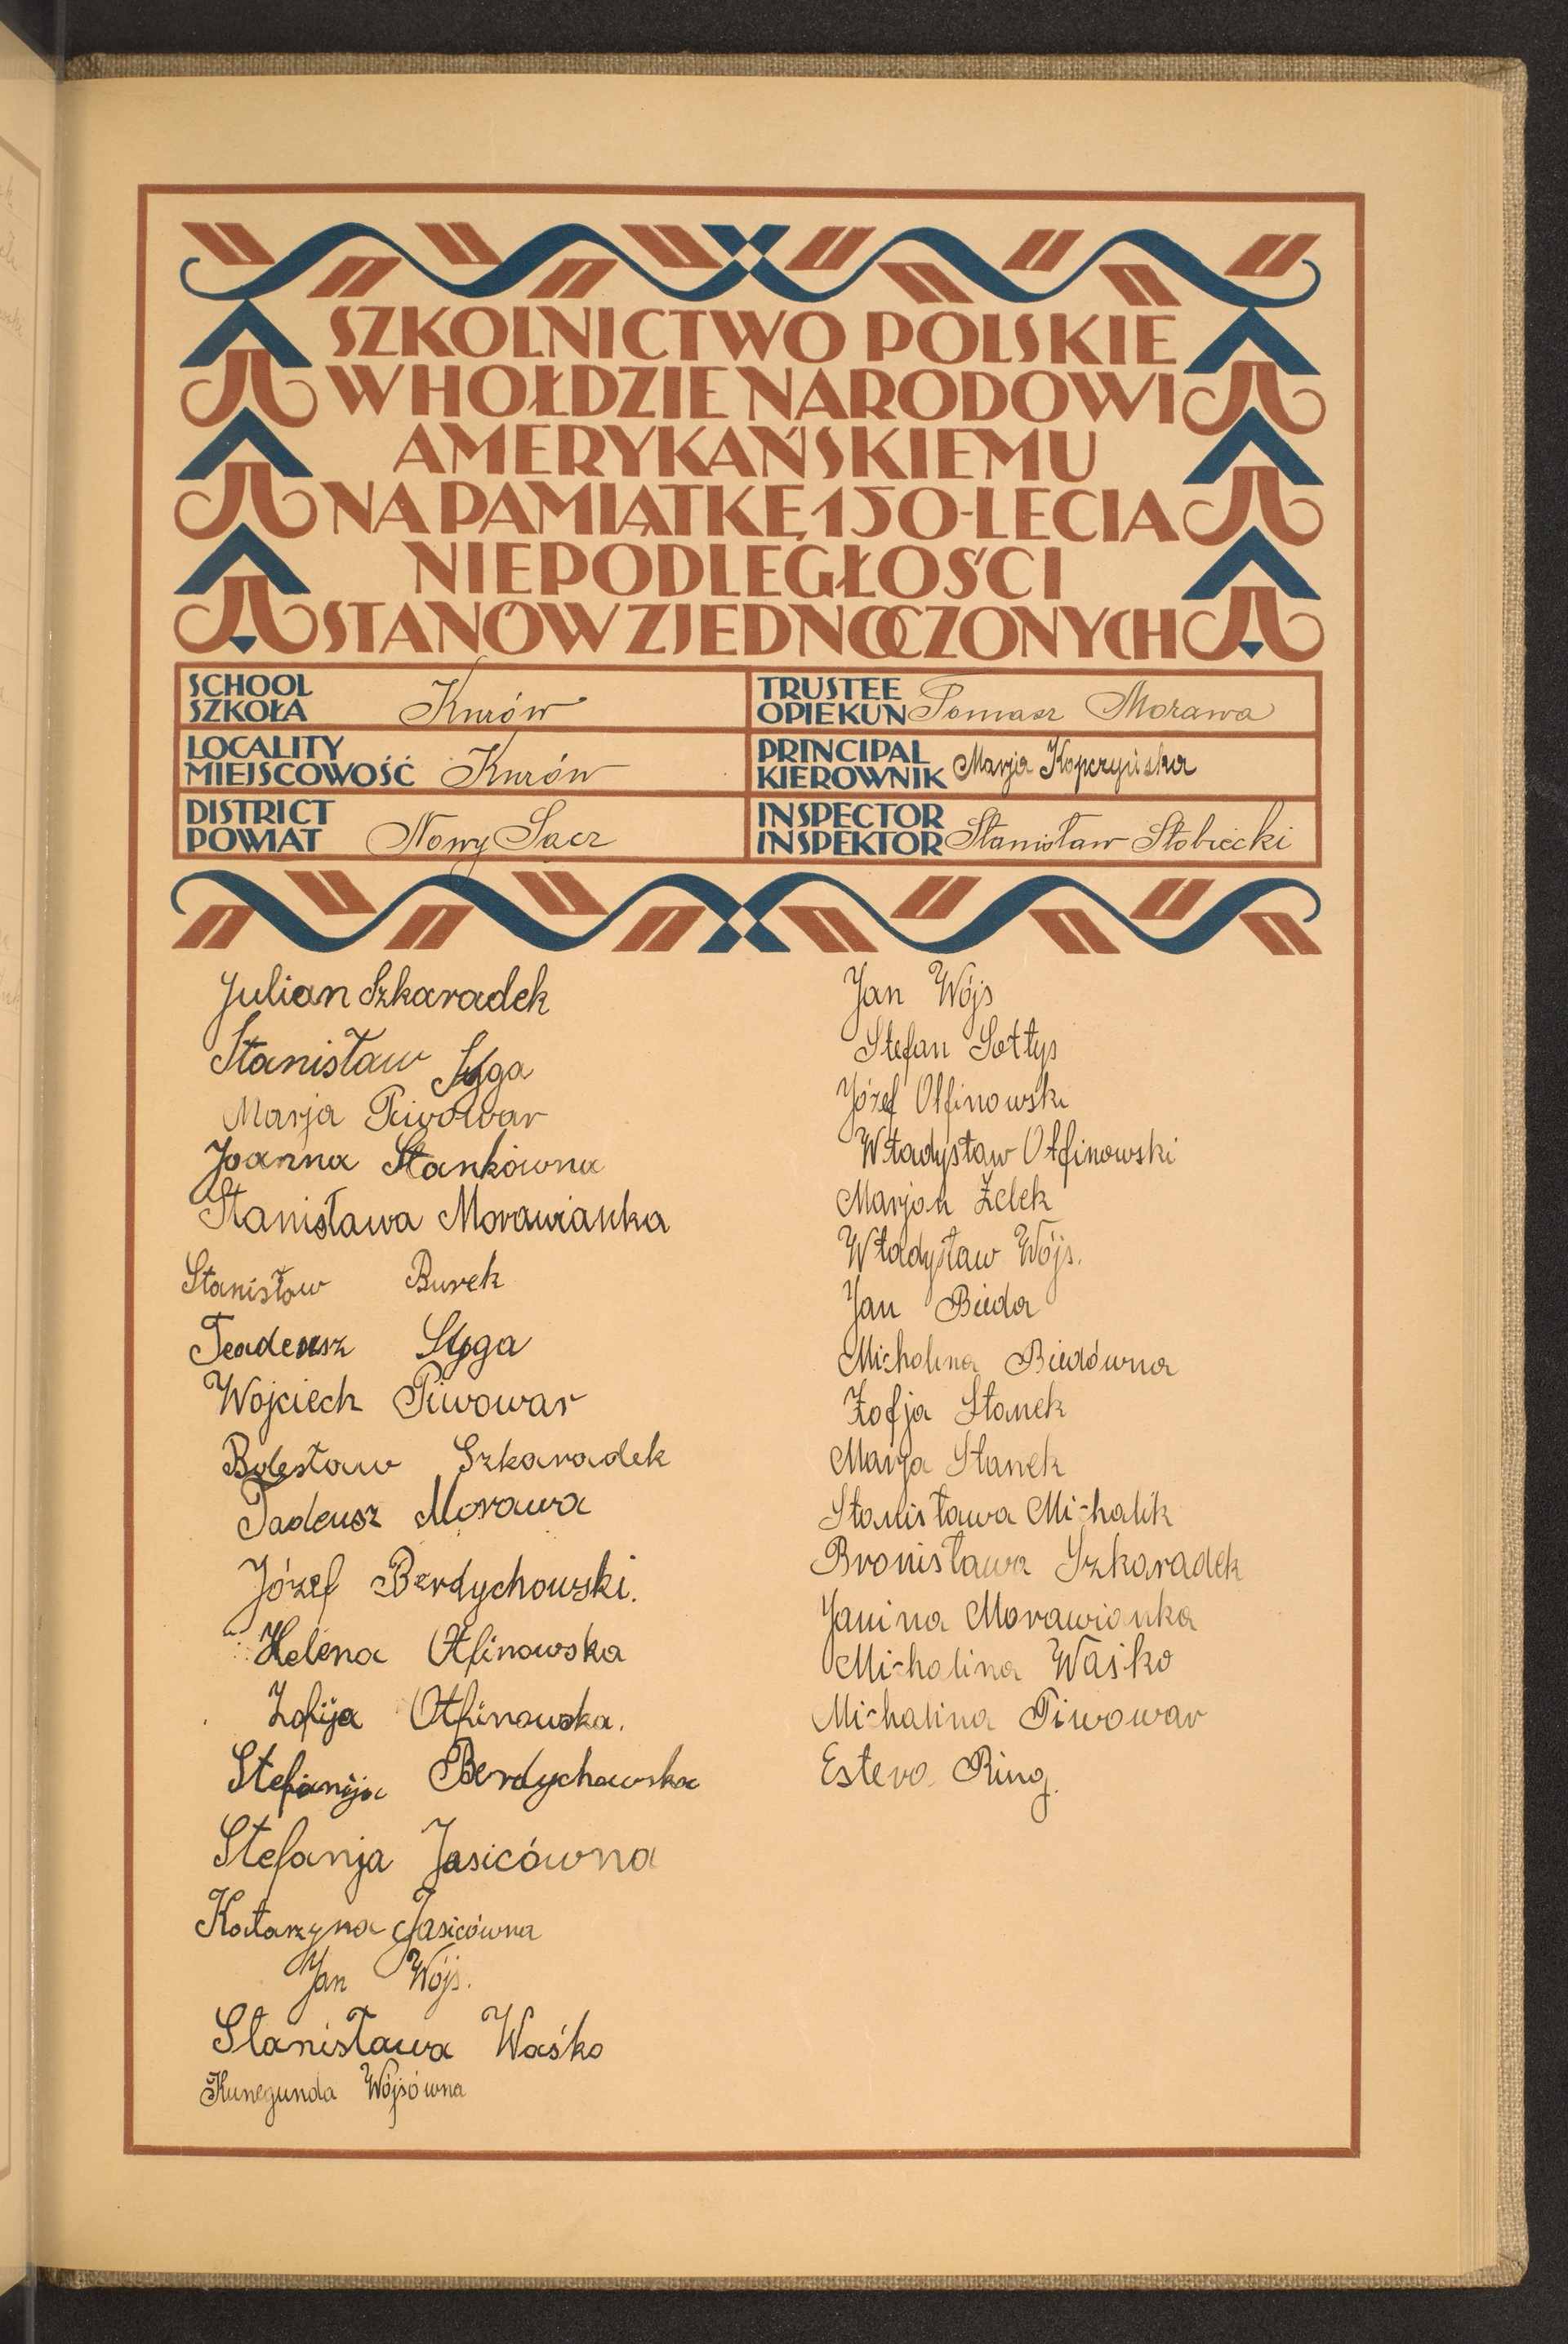 SZKOLNICTWO POLSKIE
W HOŁDZIE NARODOWI
AMERYKAŃSKIEMU
NA PAMIĄTKĘ 150-LECIA
NIEPODLEGŁOŚCI
STANÓW ZJEDNOCZONYCH
SCHOOL
SZKOŁA Knrów
LOCALITY
MIEJSCOWOŚĆ Knrów
DISTRICT
POWIAT Nowy Sącz
TRUSTEE
OPIEKUN Tomasz Morawa
PRINCIPAL
KIEROWNIK Marja Kopczyńska
INSPECTOR
INSPEKTOR Stanisław Stobiecki
Julian Szkaradek
Stanisław Syga
Marja Piwowar
Joanna Stankówna
Stanisława Morawianka
Stanisław Burek
Tadeusz Syga
Wojciech Piwowar
Bolesław Szkaradek
Tadeusz Morawa
Józef Berdychowski.
Helena Otfinowska
Zofija Otfinowska.
Stefanija Berdychowska
Stefanja Jasicówna
Katarzyna Jasicówna
Jan Wójs.
Stanisława Waśko
Kunegunda Wójsówna
Jan Wójs
Stefan Sołtys
Józef Otfinowski
Władysław Otfinowski
Marjan Żelek
Władysław Wójs.
Jan Bieda
Michalina Biedówna
Zofja Stanek
Marja Stanek
Stanisława Michalik
Bronisława Szkaradek
Janina Morawianka
Michalina Waśko
Michalina Piwowar
Estera Ring.